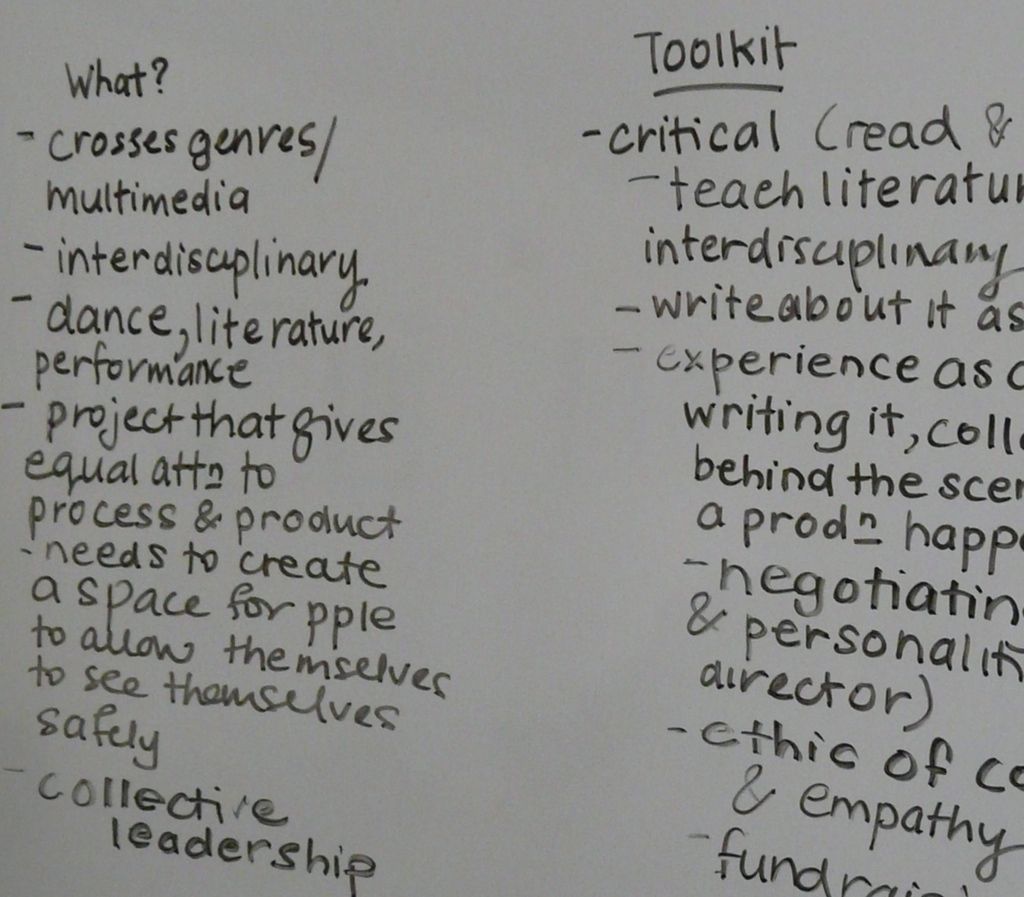 What?
- crosses genres/
multimedia
- interdisciplinary
- dance, literature,
performance
- project that gives
equal attn to
process & product
- needs to create
a space for pple
to allow themselves
to see themselves
safely
- collective
leadership
Toolkit
- critical (read &
- teach literatur
interdisciplinary
- write about it as
- experience as a
writing it, coll
behind the scen
a prodn happ
- negotiatin
& personalit
director)
- ethic of
& empathy
- fundrai